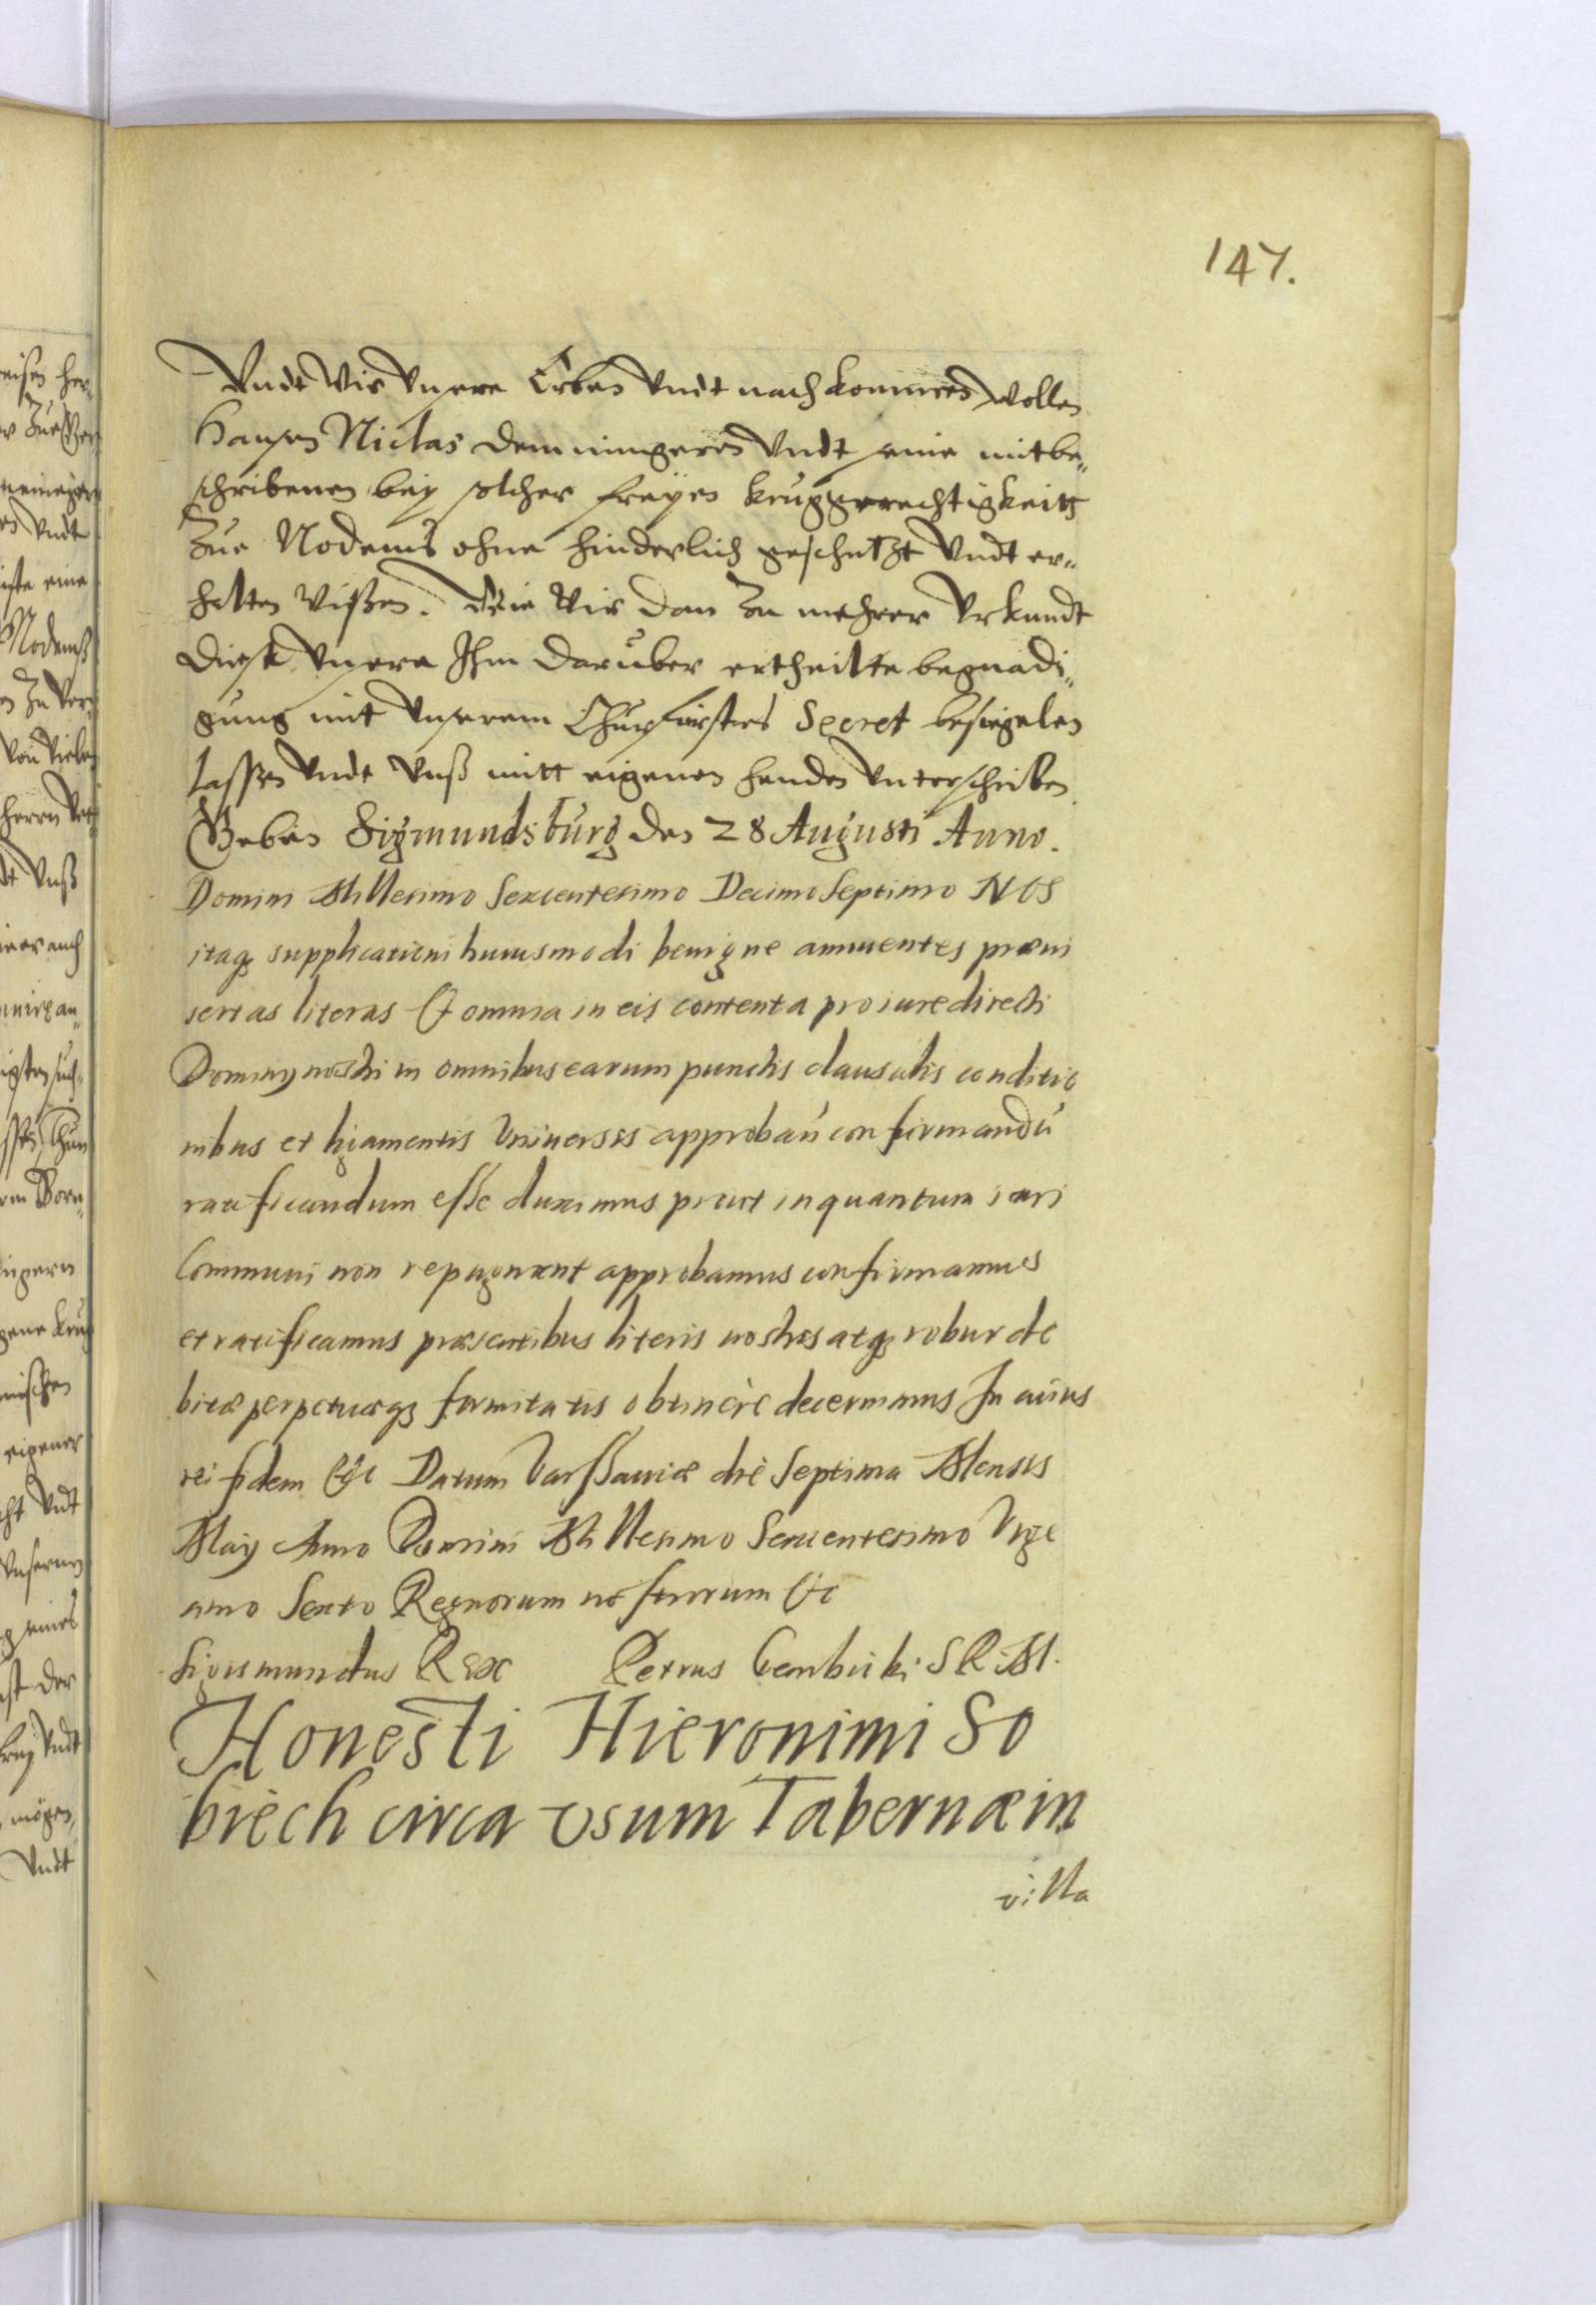 147.
Vndt Wir Vnsere Erben Vndt nachkommen wollen
Hansen Niclas dem jungeren Vndt seine mitbe„
schribenen bey solcher freyen kruggerechtigkeitt
Zue Nodems ohne hinderlich geschutzt Vndt er„
halten wißen. Wie Wir dan Zu mehrer Vrkundt
diese Vnsere Ihm daruber ertheilte begnadi„
gung mit Vnserem Churfursten Secret besiegelen
lassen Vndt Vnß mitt eigenen handen Vnterschriben
Geben Sigmundsburg den 28 Augusti Anno.
Domini Millesimo Sexcentesimo Decimo Septimo NOS
itaq supplicationi huiusmodi benigne annuentes præin
sertas literas Et omnia in eis contenta pro iure directi
Dominy nostri in omnibus earum punctis clausulis conditio
nibus et ligamentis Vniuersis approbaũ confirmandũ
ratificandum esse duximus prout in quantum iuri
Communi non repugnant approbamus confirmamus
et ratificamus præsentibus literis nostris atq robur de
bitæ perpetuæq firmitatis obtinere decernimus In cuius
rei fidem Etc Datum Varssauiæ die Septima Mensis
May Anno Domini Millesimo Sexcentesimo Vige
simo Sexto Regnorum nostrorum Etc
Sigismundus Rex Petrus Gembicki S R M.
Honesti Hieronimi So
biech circa vsum Tabernæ in
villa